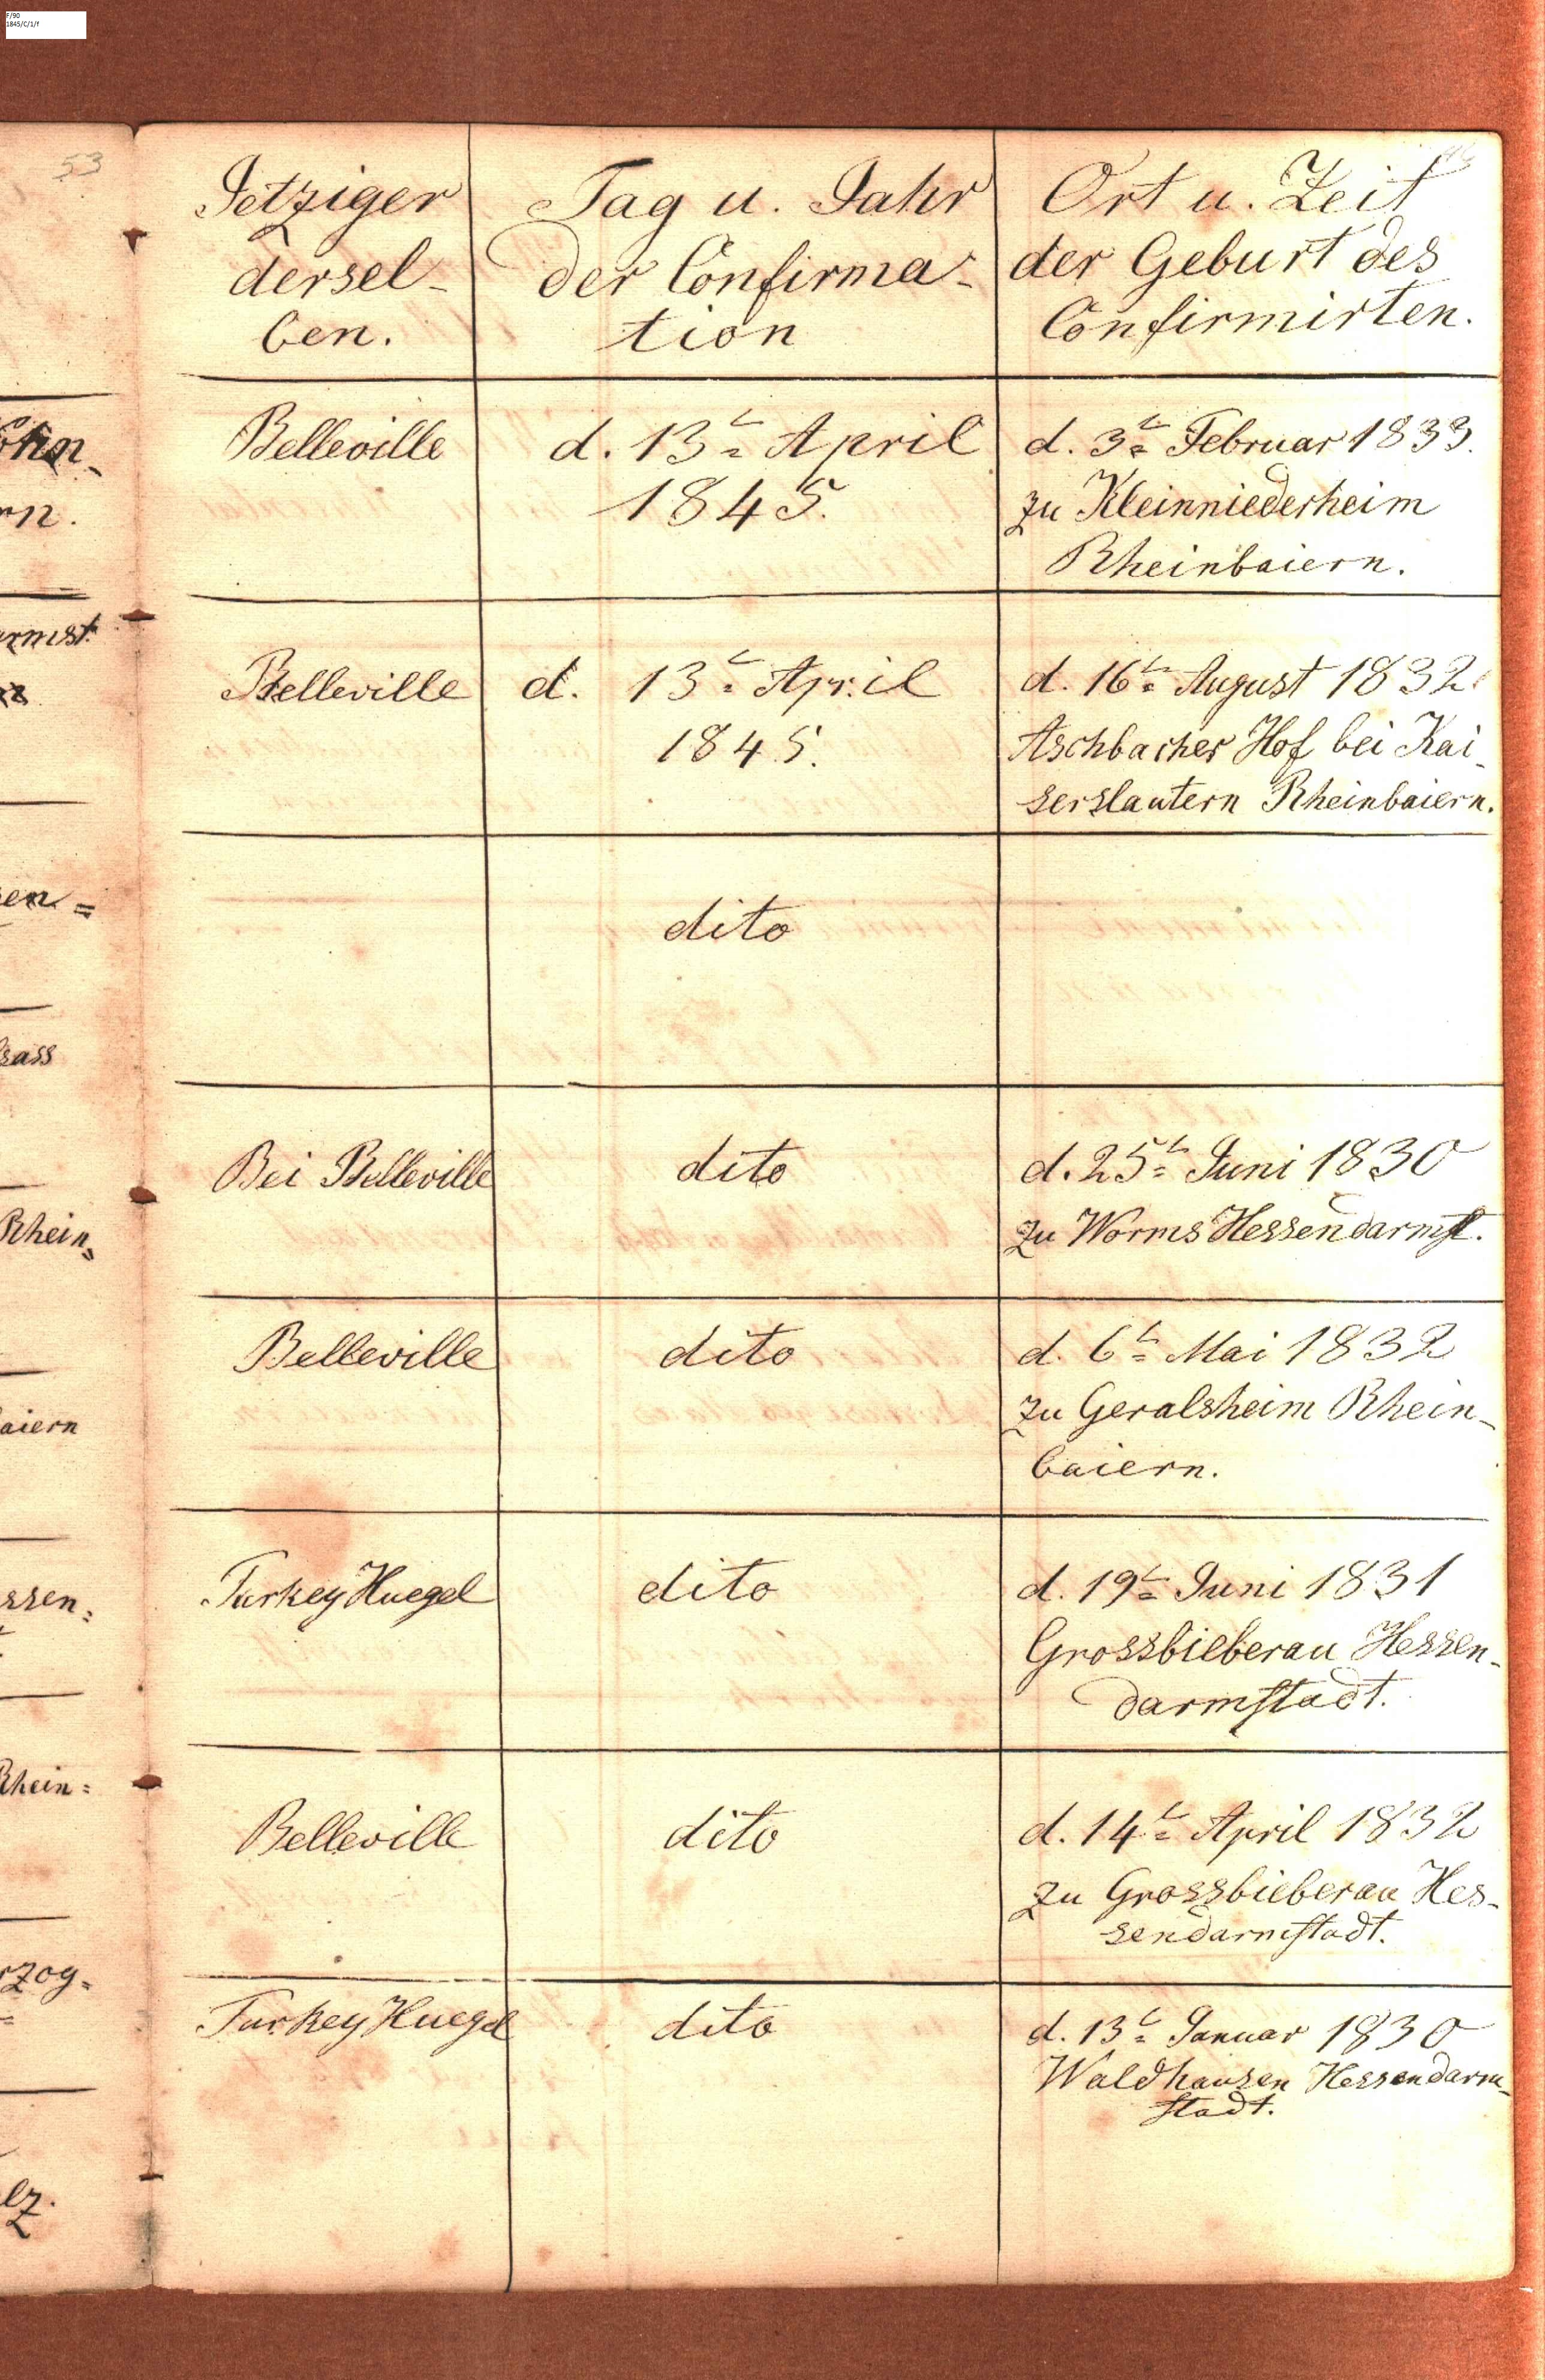 F/90
1845/C/1/f
53
Jetziger
dersel-
ben.
Tag u. Jahr
der Confirma-
tion
Ort u. Zeit
der Geburt des
Confirmirten.
Belleville
d. 13t= April
1845.
d. 3t= Februar 1833.
zu Kleinniederheim
Rheinbaiern.
Belleville
d. 13t= April
1845.
d. 16t= August 1832
Aschbacher Hof bei Kai-
serslautern Rheinbaiern.
dito
Bei Belleville
dito
d. 25t= Juni 1830
zu Worms Hessendarmst.
Belleville
dito
d. 6t= Mai 1832
zu Geralsheim Rhein-
baiern.
Turkey Huegel
dito
d. 19t= Juni 1831
Grossbieberau Hessen-
darmstadt.
Belleville
dito
d. 14t= April 1832
zu Grossbieberau Hes-
sendarmstadt.
Turkey Huegel
dito
d. 13t= Januar 1830
Waldhausen Hessendarm-
stadt.
rn.
armst.
en=
sass
Rhein=
aiern
ssen=
Rhein=
rzog=
lz.